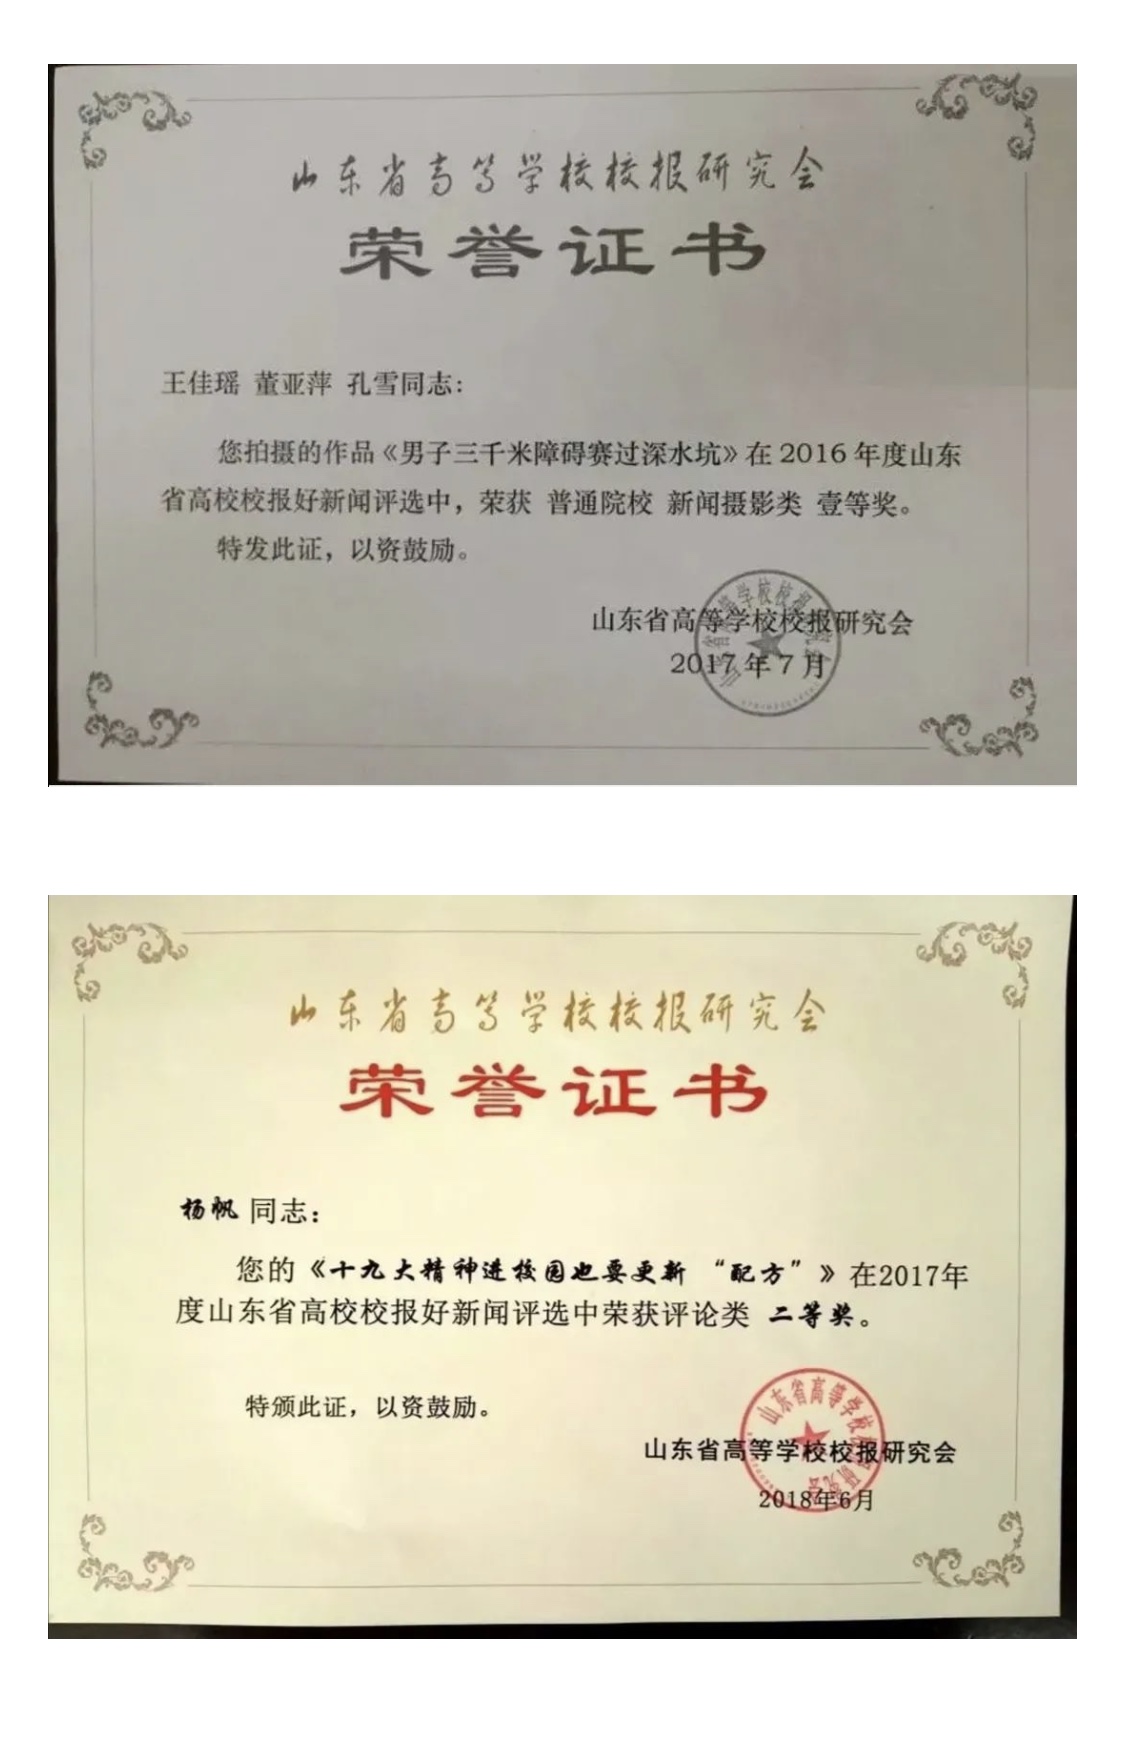 山东省高等学校校报研究会
荣誉证书
王佳瑶 董亚萍 孔雪同志:
您拍摄的作品《男子三千米障碍赛过深水坑》在 2016 年度山东
省高校校报好新闻评选中，荣获 普通院校 新闻摄影类 壹等奖。
特发此证，以资鼓励。
山东省高等学校校报研究会
山东省高等学校校报研究会
2017 年 7 月
山东省高等学校校报研究会
荣誉证书
杨帆 同志：
您的《十九大精神进校园也要更新 “配方”》在2017年
度山东省高校校报好新闻评选中荣获评论类 二等奖。
特颁此证，以资鼓励。
山东省高等学校校报研究会
山东省高等学校校报研究会
2018年6月